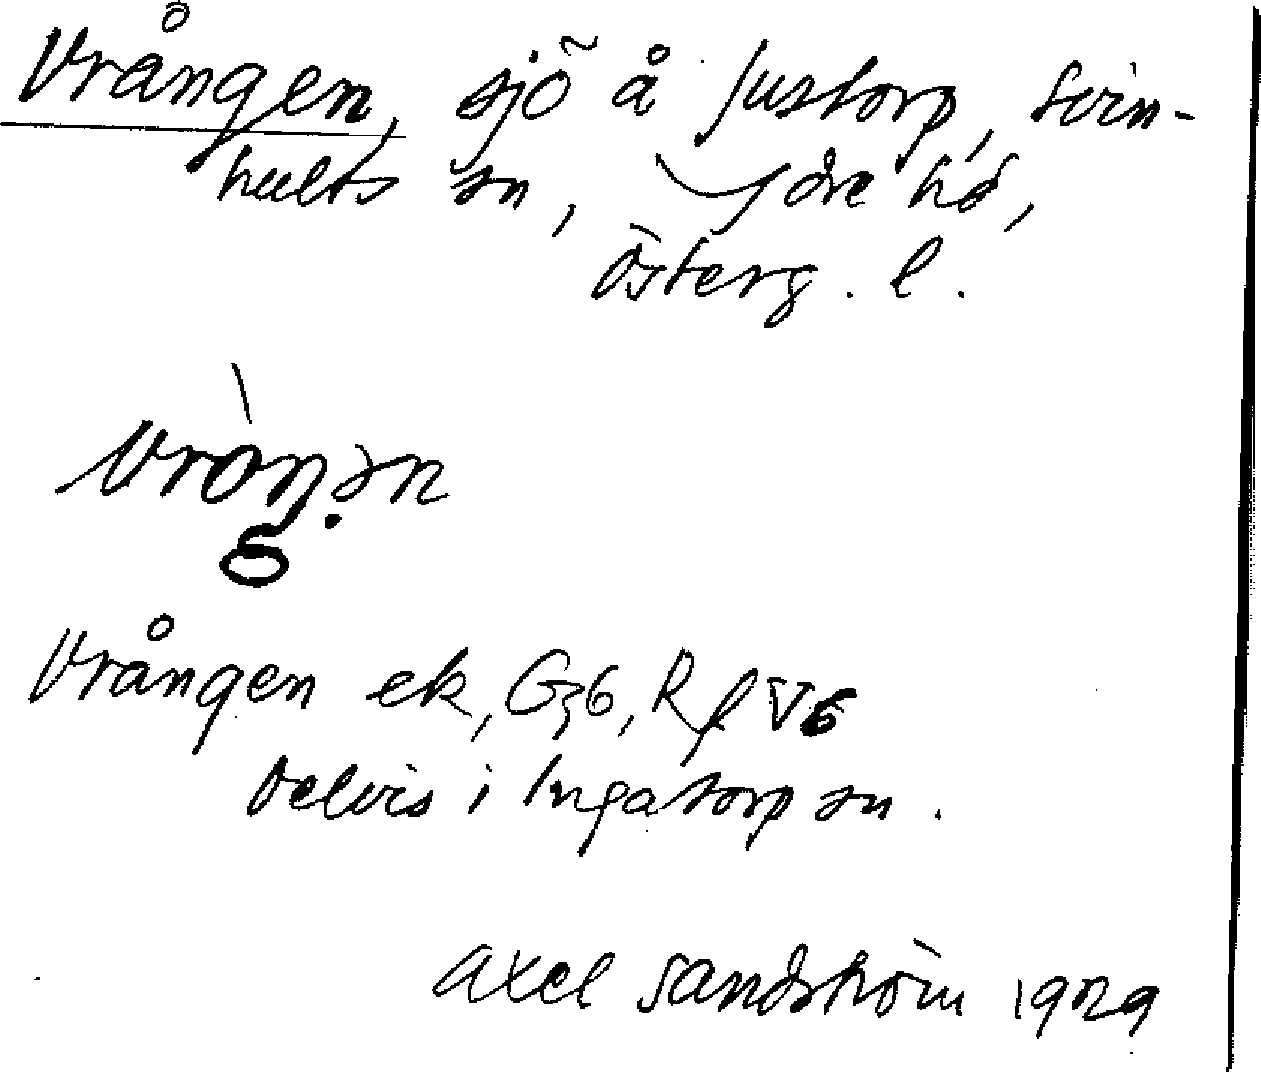 Vrången, sjö å Justorp, Svin-
hults sn, Ydre hd,
Österg. l.
vròŋ.ən
Vrången ek, G36, Rf V6
Delvis i Ingatorp sn.
Axel Sandström 1929